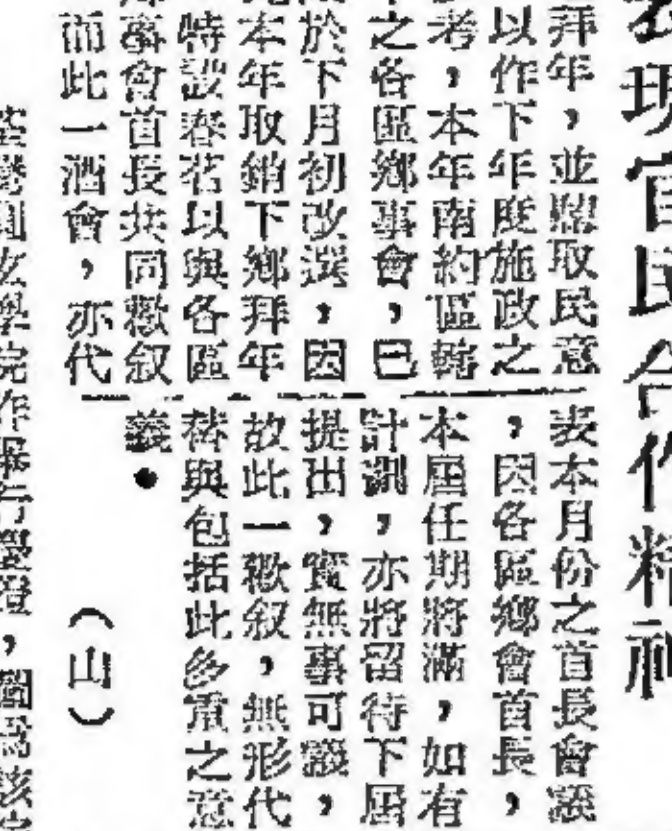 表現官民合作精神
拜年，並聽取民意
以作下年度施政之
考，本年南約區轄
之各區鄉事會，已
於下月初改選，因
本年取銷下鄉拜年
特設春茗以與各區
事會首長共同歡叙
而此一酒會，亦代
表本月份之首長會議
，因各區鄉會首長，
本屆任期將滿，如有
計劃，亦將留待下屆
提出，實無事可議，
故此一歡叙，無形代
替與包括此多重之意
義●
（山）
學院作舉行
，
為該